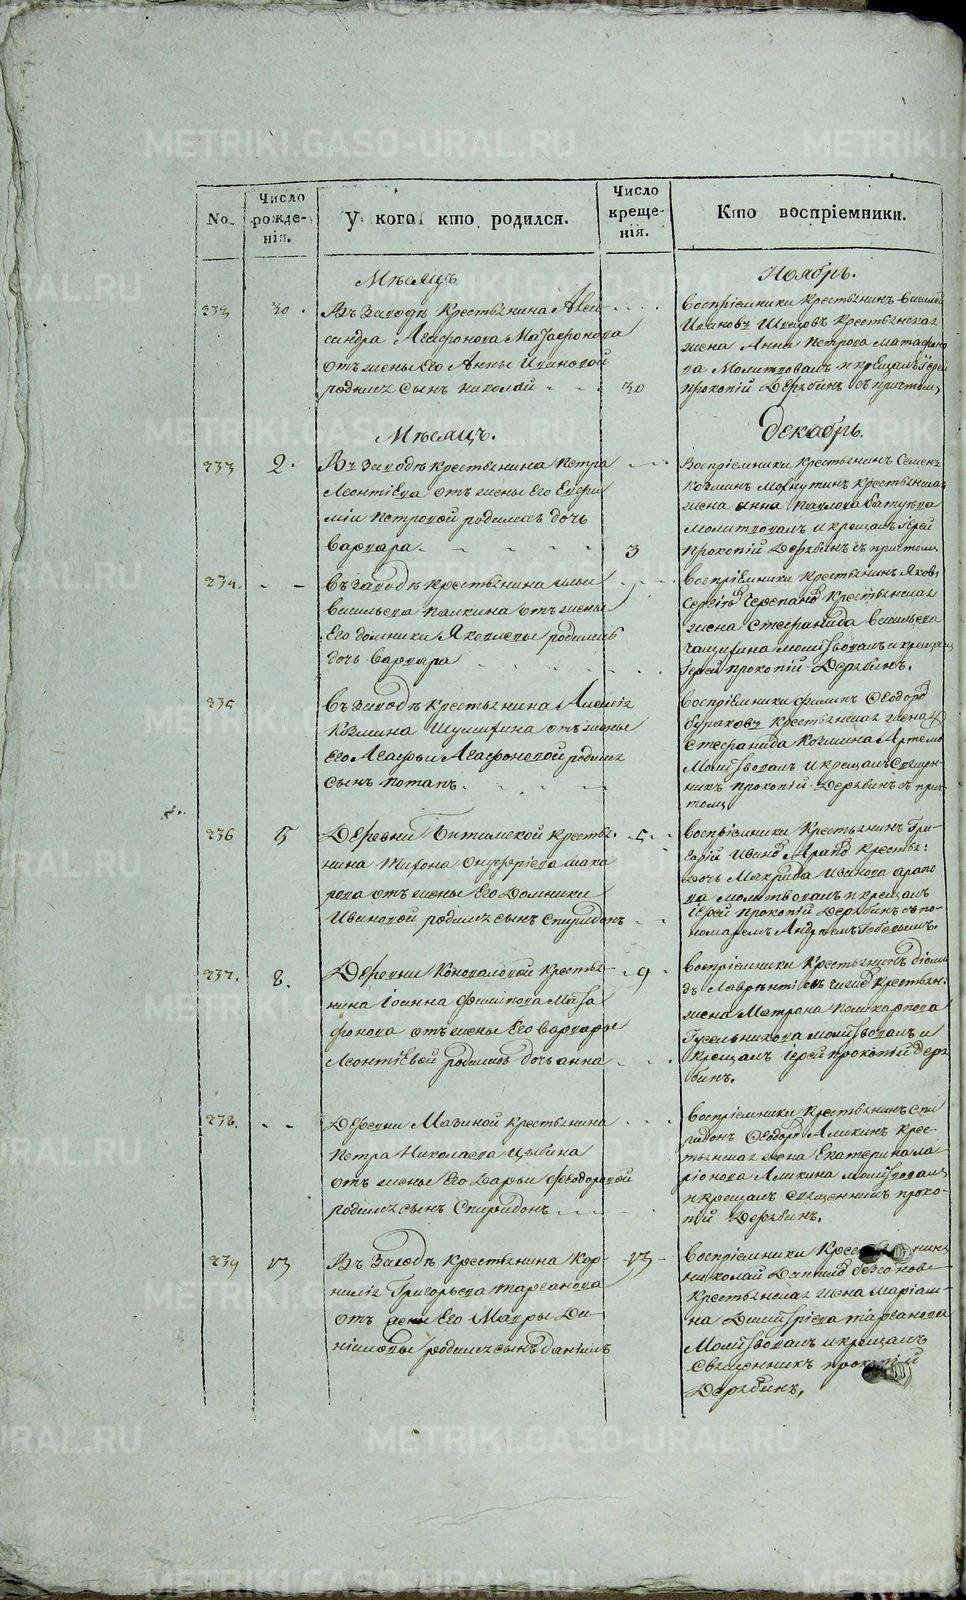 METRIKI.GASO-URAL.RU
No.
Число рожде-нія.
У кого кто родился.
Число креще-нія.
Кто воспріемники.
Мѣсяцъ
Ноябрь.
232
30
Въ Заводѣ Крестьянина Алек
сандра Агафонова Матафонова
отъ жены Его Анны Ивановой
родился сынъ Николай
30
Воспріемники Крестьянинъ
Ивановъ Швецовъ Крестьянская
жена Анна Петрова Матафоно
ва Молитвовалъ и крещалъ Іерей
Прокопій Дерябинъ съ причтомъ
Мѣсяцъ.
Декабрь.
233
2.
Въ Заводѣ крестьянина Петра
Леонтіева отъ жены Его Евфи
міи Петровой родилась дочь
Варвара
3
Воспріемники Крестьянинъ Семенъ
Козминъ крестьянская
жена Анна Павлова
молитвовалъ и крещалъ Іерей
Прокопій Дерябинъ съ причтомъ
234.
Въ Заводѣ крестьянина Ильи
Васильева Палкина отъ жены
Его Домники Яковлевы родилась
дочь Варвара
Воспріемники Крестьянинъ Яковъ
Сергѣевъ Черепановъ Крестьянская
жена Стефанида Васильева
молитвовалъ и крещалъ
Іерей Прокопій Дерябинъ.
235
Въ Заводѣ Крестьянина Алексѣя
Козмина отъ жены
Его Агафьи Агафоновой родился
сынъ Потапъ.
Воспріемники Филипъ Ѳеодоровъ
Бураковъ Крестьянская жена
Стефанида Козмина
Молитвовалъ и крещалъ Священ-
никъ Прокопій Дерябинъ съ прич-
томъ
236
5
Деревни крестья-
нина Тихона Онуфріева Мака
рова отъ жены Его Домники
Ивановой родился сынъ Спиридонъ
5.
Воспріемники Крестьянинъ Гри-
горій Ивановъ Араповъ Крестья:
дочь Макрида Иванова Арапо
ва молитвовалъ и крещалъ
Іерей Прокопій Дерябинъ съ по-
номаремъ Андреемъ
237.
8.
Деревни Коноваловой Крестья-
нина Іоанна Филипова Мата
фонова отъ жены Его Варвары
Леонтіевой родилась дочь Анна
9
Воспріемники Крестьянинъ Діоми
дъ Лаврентіевъ Крестьян:
жена Матрона Поликарпова
Гусельникова молитвовалъ и
крещалъ Іерей Прокопій Деря
бинъ.
238.
Деревни Мазиной Крестьянина
Петра Николаева Цыбина
отъ жены Его Дарьи Феодоровой
родился сынъ Спиридонъ
Воспріемники Крестьянинъ Спи
ридонъ Ѳеодоровъ Аликинъ Крес-
тьянская жена Екатерина Ла
ріонова Аликина молитвовалъ
и крещалъ Священникъ Проко-
пій Дерябинъ.
239
13
Въ Заводѣ Крестьянина Кор-
нилія Григорьева
отъ жены Его Мавры Да-
ниловы родился сынъ Даніилъ
13
Воспріемники
Николай Даниловъ
Крестьянская жена Маріам-
на Дмитріева
Молитвовалъ и крещалъ
Священникъ Прокопій
Дерябинъ.